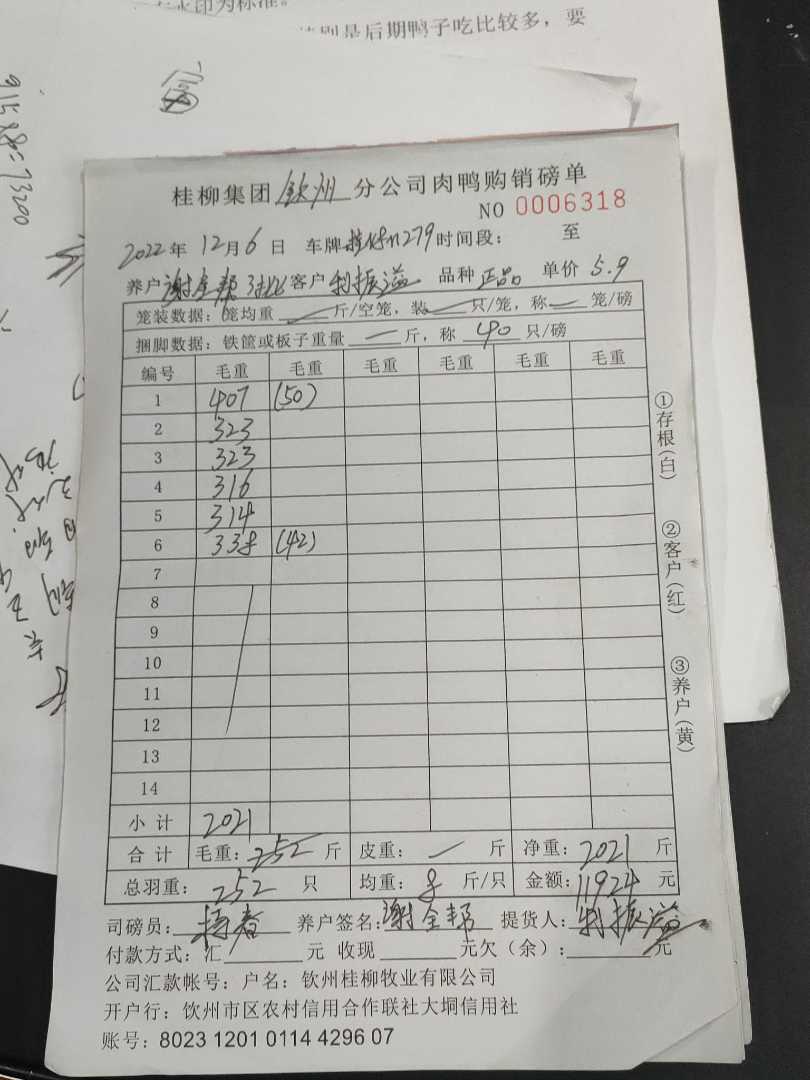 水印为标准。
别是后期鸭子吃比较多，要
富
桂柳集团钦州分公司肉鸭购销磅单
NO 0006318
2022年12月6日 车牌 279 时间段： 至
养户 谢全邦 客户 利振溢 品种 正品 单价 5.9
笼装数据：笼均重 斤/空笼，装 只/笼，称 笼/磅
捆脚数据：铁筐或板子重量 一 斤，称 40 只/磅
编号 毛重 毛重 毛重 毛重 毛重 毛重
1 407 (50)
2 323
3 323
4 316
5 314
6 338 (42)
7
8
9
10
11
12
13
14
小计 2021
合计 毛重：252 斤 皮重：一 斤 净重：2021 斤
总羽重：252 只 均重：8 斤/只 金额：11924 元
司磅员： 养户签名：谢全邦 提货人：利振溢
付款方式：汇 元 收现 元欠（余）： 元
公司汇款帐号：户名：钦州桂柳牧业有限公司
开户行：钦州市区农村信用合作联社大垌信用社
账号：8023 1201 0114 4296 07
①存根（白）
②客户（红）
③养户（黄）
=73200